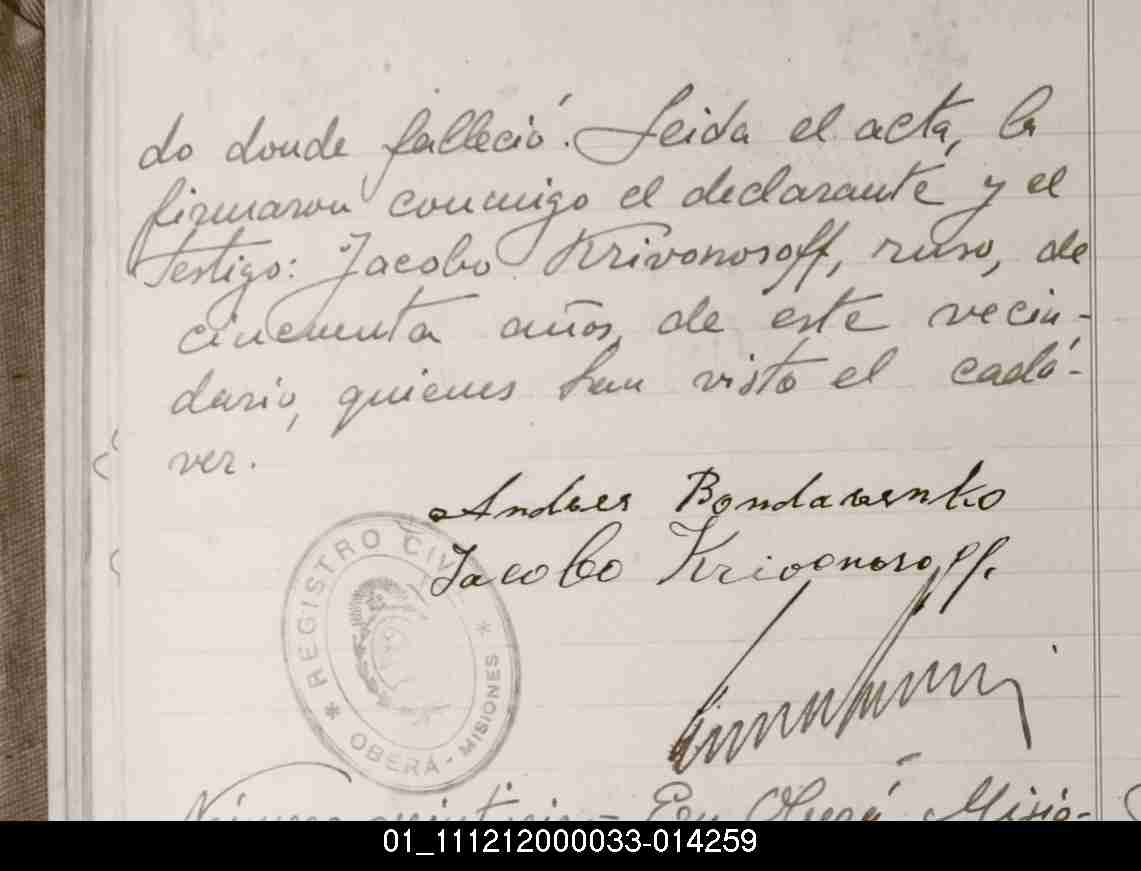 do donde falleció. Leida el acta, la
firmaron conmigo el declarante y el
testigo: Jacobo Krivonosoff, ruso, de
cincuenta años, de este vecin-
dario, quienes han visto el cadá-
ver.
Andres Bondarenko
Jacobo Krivonosoff.
REGISTRO CIVIL
* OBERÁ - MISIONES *
Número - En Oberá, Misio-
01_111212000033-014259